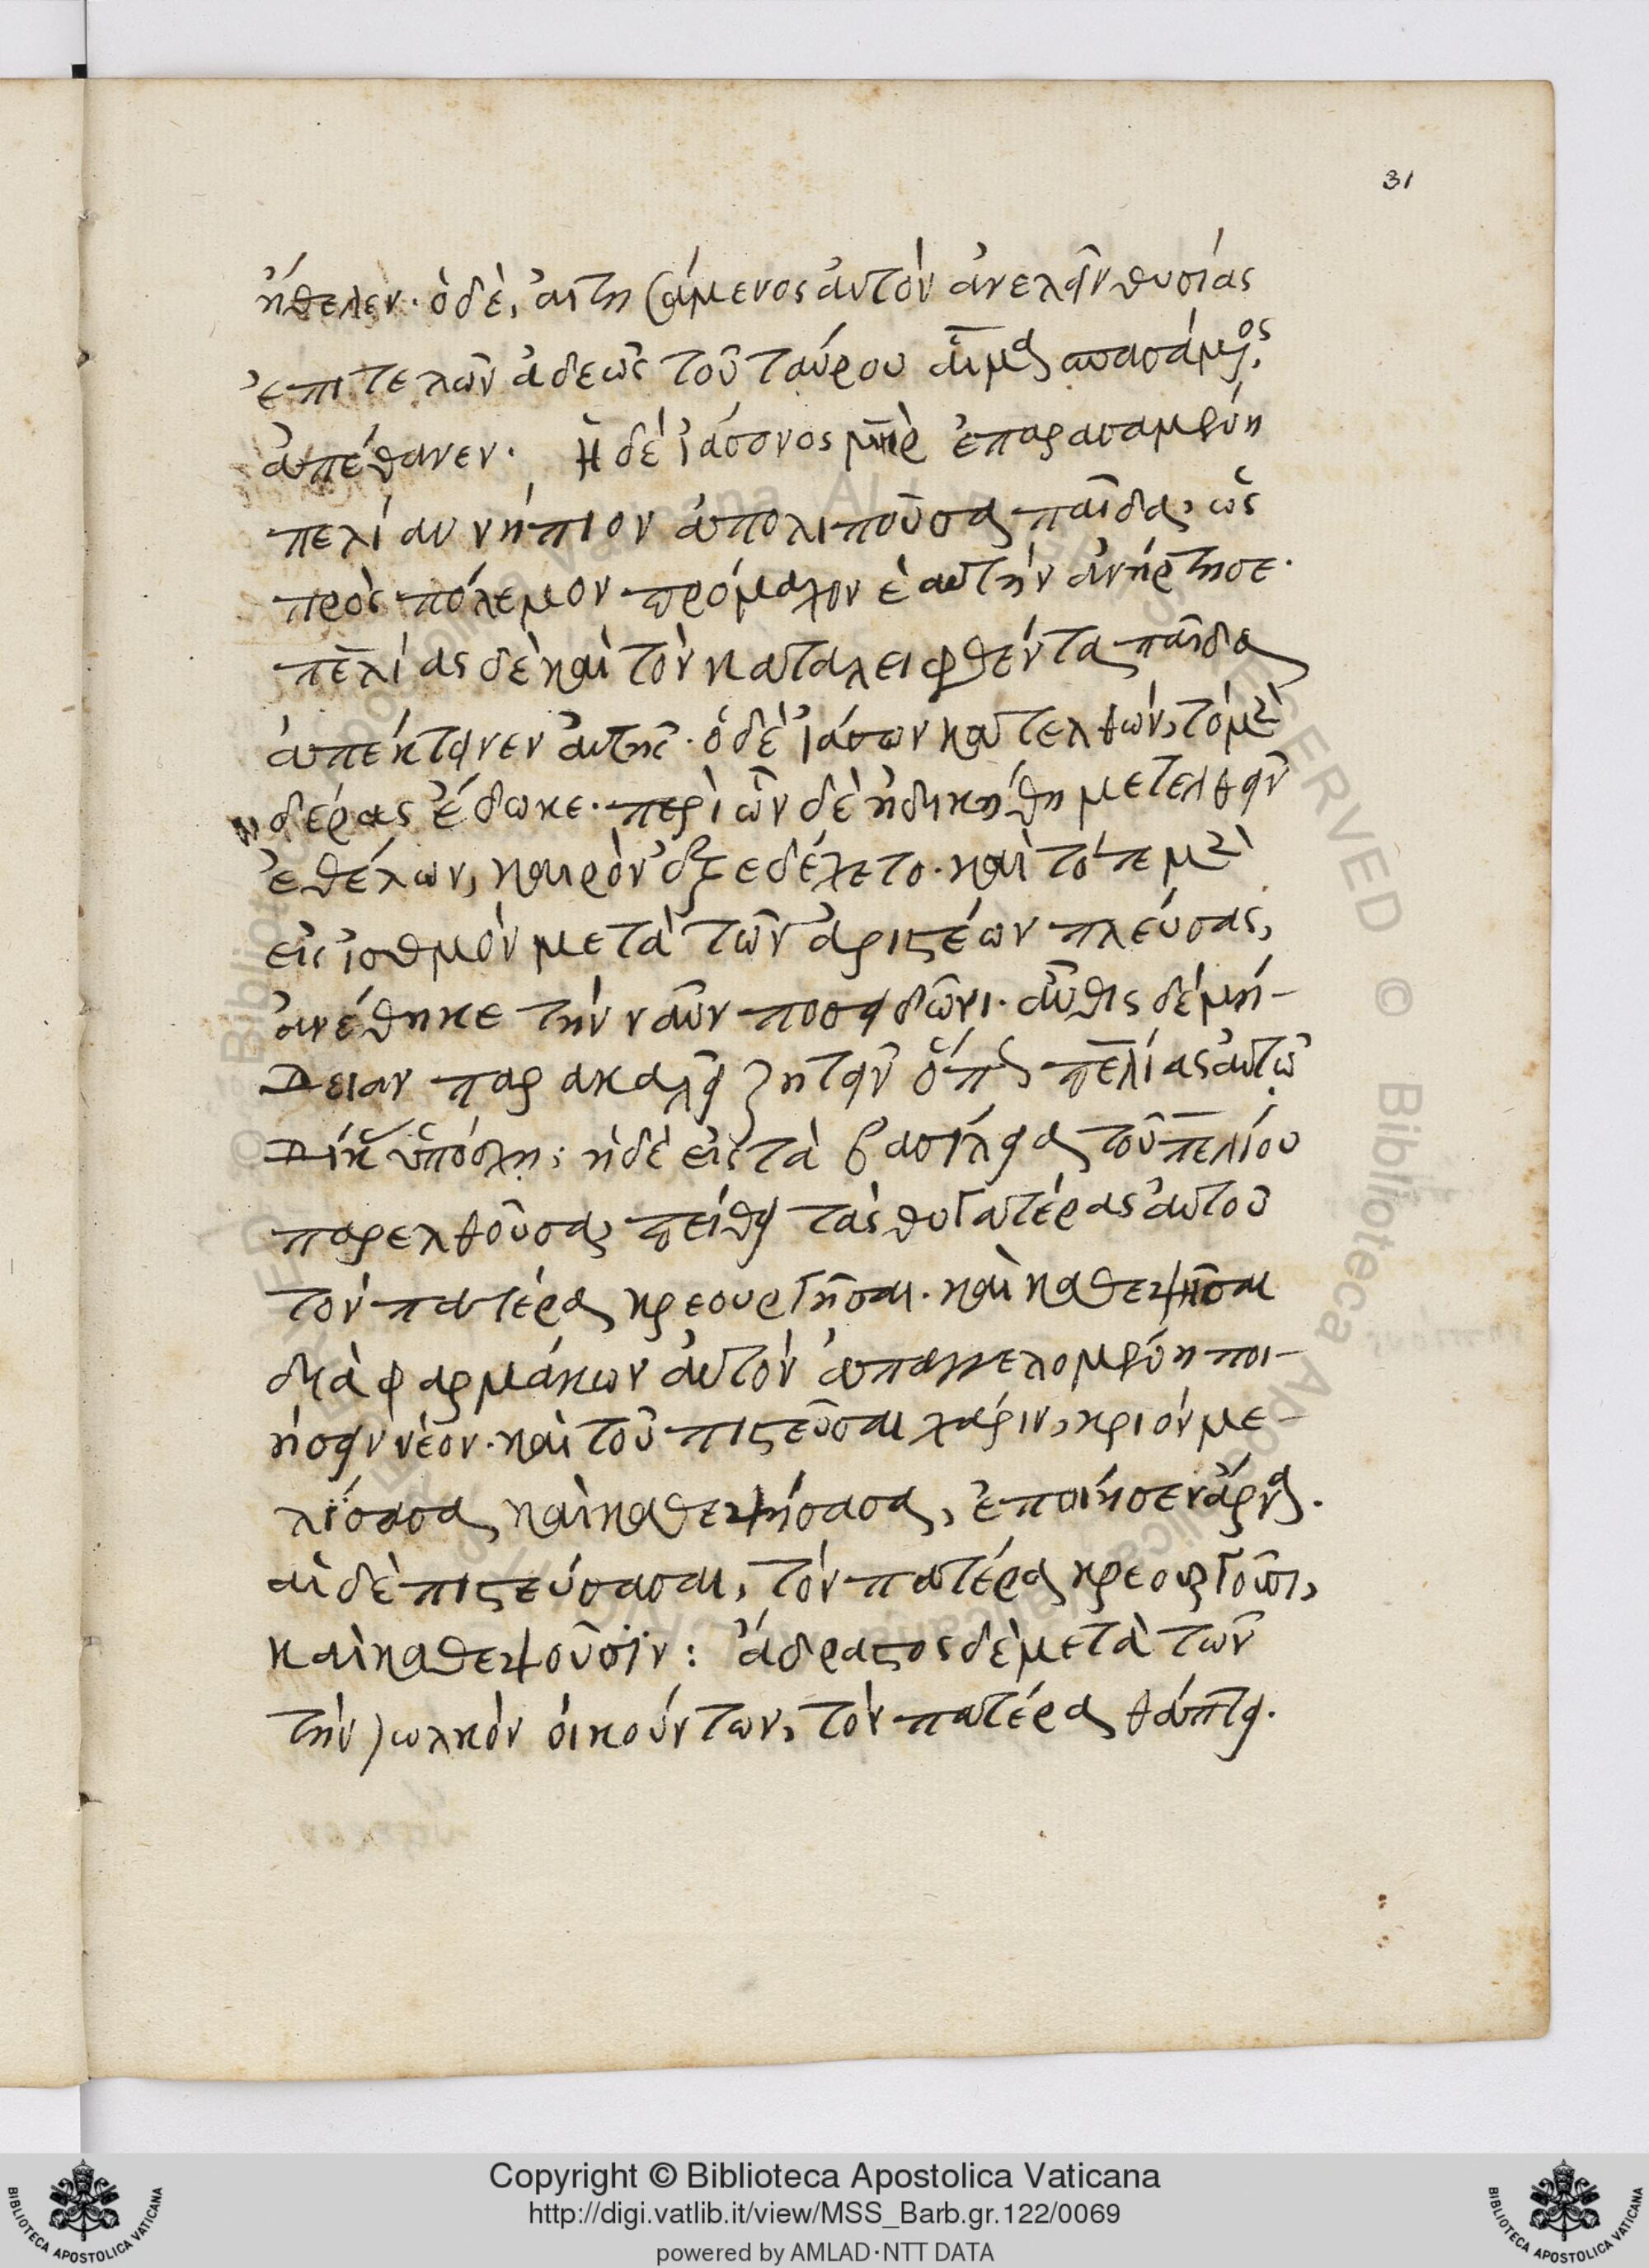 31
ἤθελεν· ὁ δὲ, αἰτησάμενος αὐτὸν ἀνελεῖν θυσίας
ἐπιτελῶν ἀδεῶς τοῦ ταύρου αἷμα σπασάμ(εν)ος,
ἀπέθανεν. Ἡ δὲ ἰάσονος μηρ ἐπαρασαμένη
πελίαν νήπιον ἀπολιποῦσα παῖδα, ὡς
πρὸς πόλεμον πρόμαχον ἑαυτὴν ἀνήρτησε·
πελίας δὲ καὶ τὸν καταλειφθέντα παῖδα
ἀπέκτεινεν αὐτῆς· ὁ δὲ ἰάσων κατελθών, τὸ μὲν
δέρας ἔδωκε· περὶ ὧν δὲ ἠδικήθη μετελθεῖν
ἐθέλων, καιρὸν ἐξεδέχετο· καὶ τότε μὲν
εἰς ἰσθμὸν μετὰ τῶν ἀριστέων πλεύσας,
ἀνέθηκε τὴν ναῦν ποσειδῶνι· αὖθις δὲ μή-
δειαν παρακαλεῖ ζητεῖν ὅπως πελίας αὐτῶ
δίκ(ην) ὑπόσχη; ἡ δὲ εἰς τὰ βασίλεια τοῦ πελίου
παρελθοῦσα, πείθει τὰς θυγατέρας αὐτοῦ
τὸν πατέρα κρεουργῆσαι· καὶ καθεψῆσαι
διὰ φαρμάκων αὐτὸν ἀπαγγελομένη ποι-
ήσειν νέον· καὶ τοῦ πιστεῦσαι χάριν, κριὸν με-
λίσασα καὶ καθεψήσασα, ἐποίησεν ἄρνα.
αἱ δὲ πιστεύσασαι, τὸν πατέρα κρεουργοῦσι,
καὶ καθεψοῦσϊν: ἄδραστος δὲ μετὰ τῶν
τὴν ἰωλκὸν οἰκούντων, τὸν πατέρα θάπτει.
Copyright © Biblioteca Apostolica Vaticana
http://digi.vatlib.it/view/MSS_Barb.gr.122/0069
powered by AMLAD·NTT DATA
BIBLIOTECA APOSTOLICA VATICANA
BIBLIOTECA APOSTOLICA VATICANA